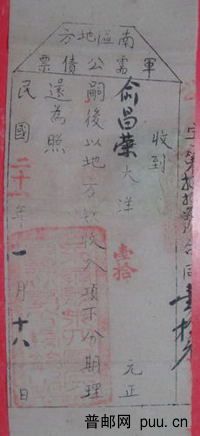 南區地方
軍需公債票
收到
俞昌榮大洋壹拾元正
嗣後以地方收入項下份期理
還為照
民國二十一年一月十八日
合同壹拾元
普邮网 puu.cn